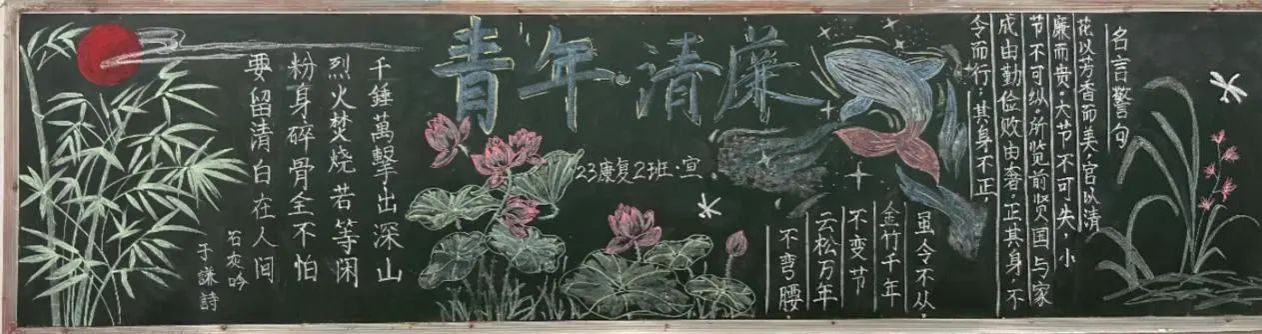 青年·清廉
千錘萬擊出深山
烈火焚烧若等闲
粉身碎骨全不怕
要留清白在人间
石灰吟
于謙詩
23康复2班·宣
名言警句
花以芳香而美·官以清
廉而贵·大节不可失·小
节不可纵·所览前贤国与家
成由勤俭败由奢·正其身·不
令而行·其身不正
虽令不从·
金竹千年
不变节
云松万年
不弯腰·